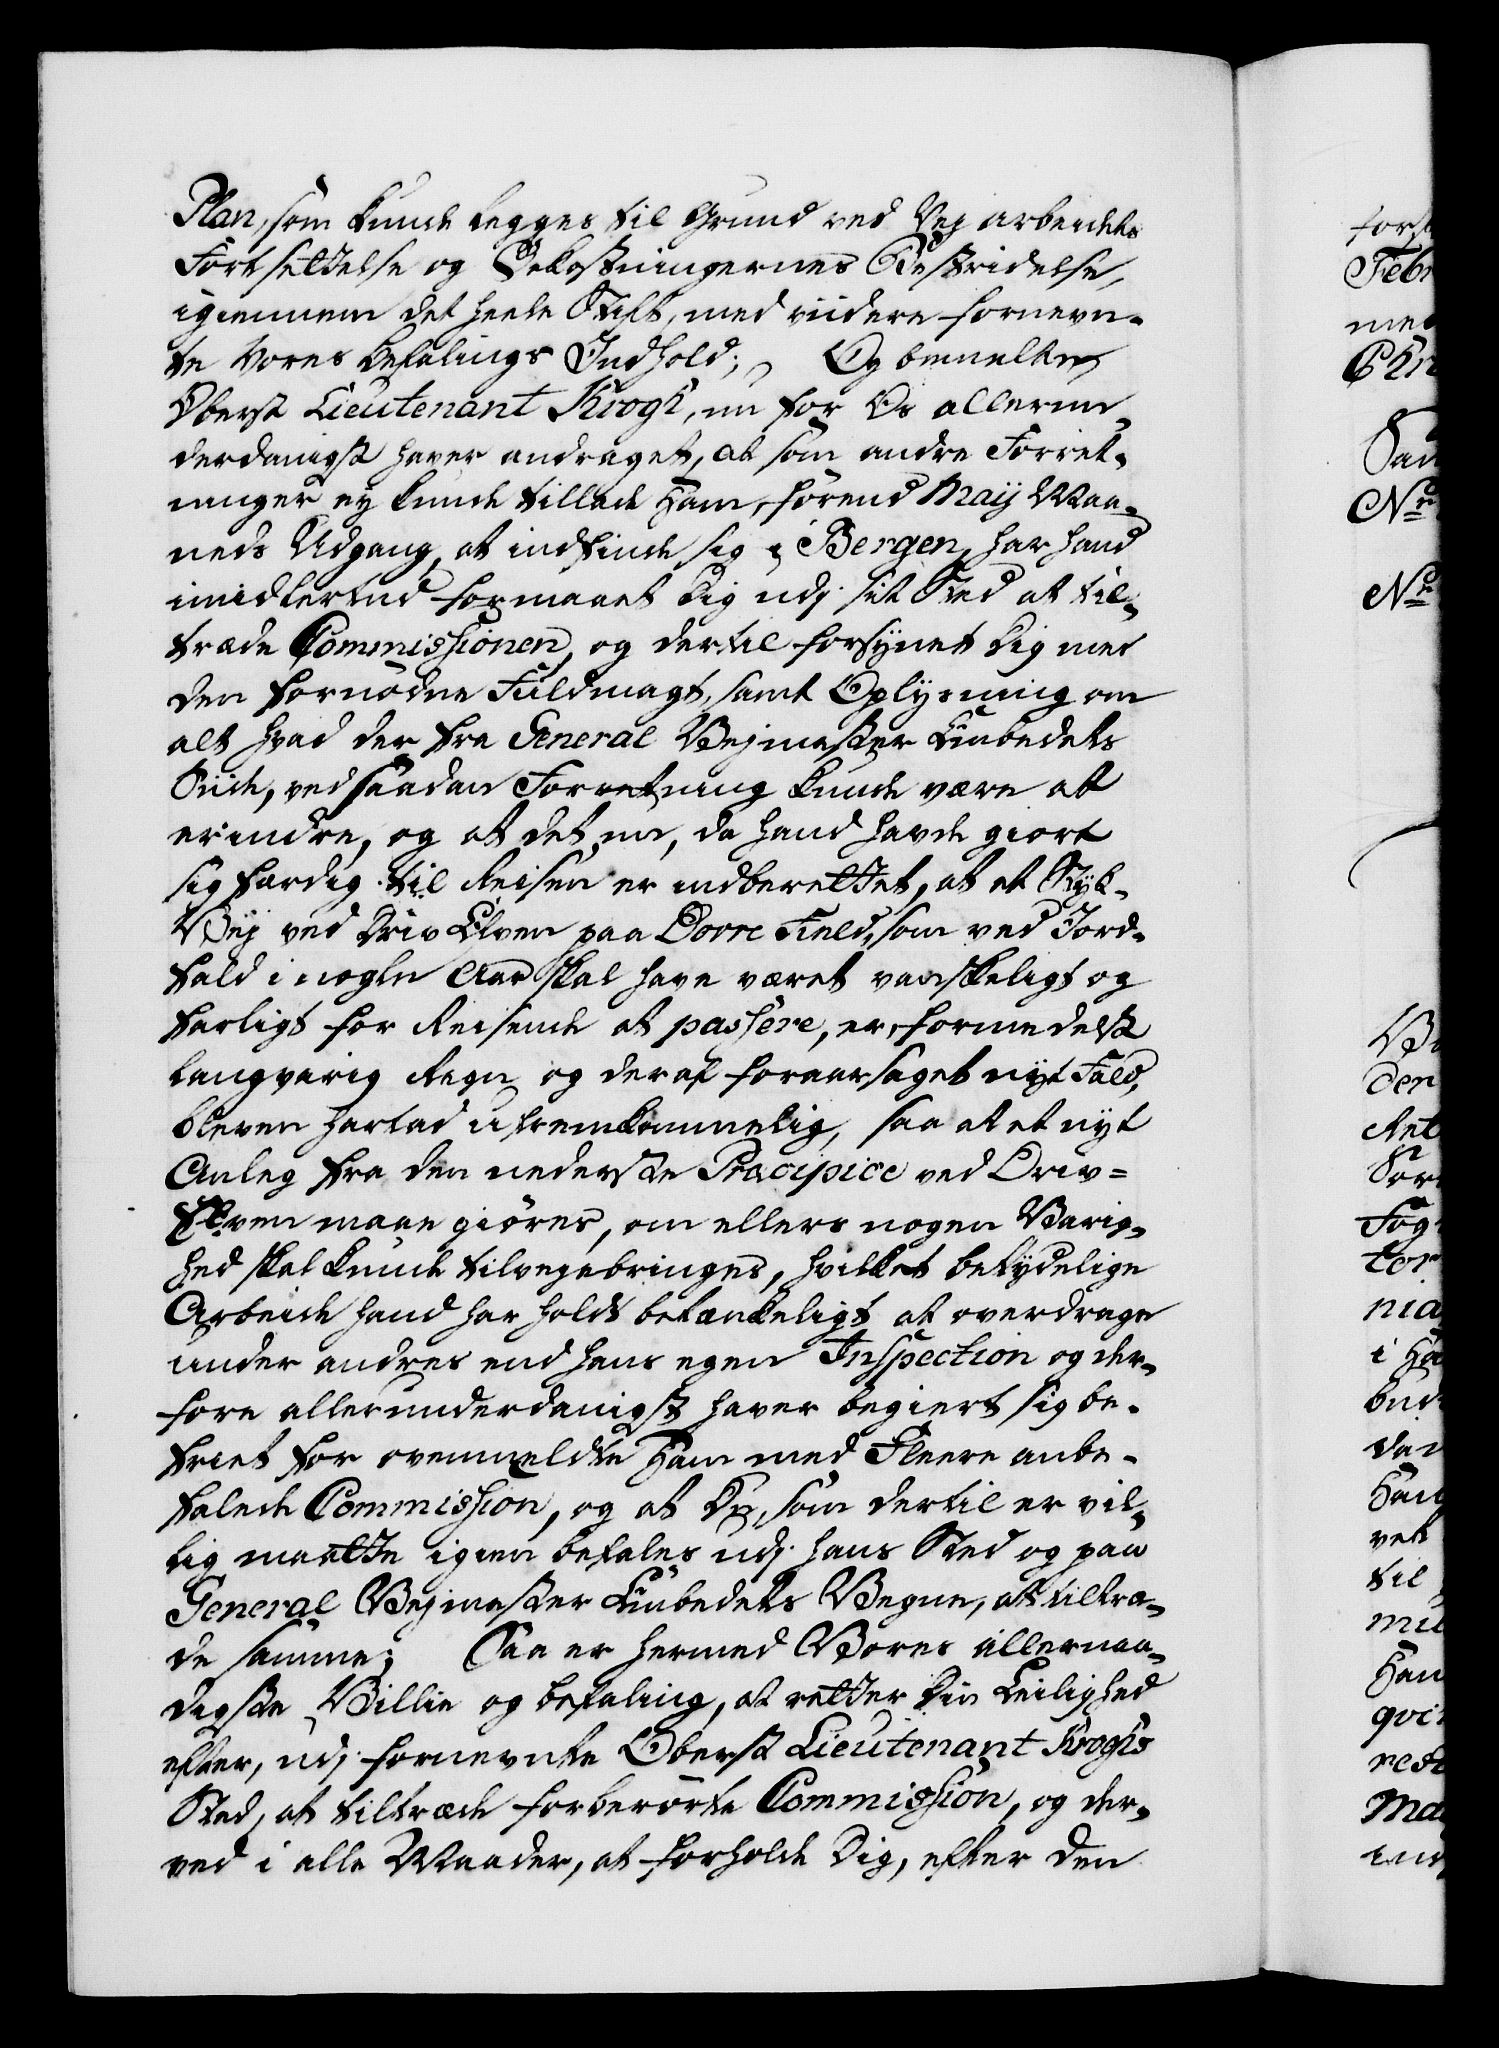 Plan, som kunde legges til Grund ved Vej arbeidets
Fortsættelse og Bekostningernes Bestridelse,
igiennem det heele Stift, med viidere fornevn-
te Vores befalings Indhold; Og bemelte
Oberst Lieutenant Krogh, nu for Os allerun-
derdanigst haver andraget, at som andre Forret-
ninger ey kunde tillade Ham, førend Maij Maa-
neds Udgang, at indfinde sig i Bergen, har hand
imidlertid formaaet Dig udj sit Sted at til-
træde Commissionen, og dertil forsynet Dig med
den fornødne Fuldmagt, samt Oplysning om
alt hvad der fra General Vejmester Embedets
Siide, ved saadan Forretning kunde være at
erindre, og at det nu, da hand havde giort
sig færdig til Reisen er indberettet, at et Stÿk
Veÿ ved Driv Elven paa Dovre Field, som ved Jord-
fald i nogle Aar skal have været vanskeligt og
farligt for Reisende at passere, er, formedelst
langvarig Regn og deraf foraarsaget nyt Fald,
bleven hartad ufremkommelig, saa at et nyt
Anleg fra den nederste Præcipice ved Driv=
Elven maae giøres, om ellers nogen Varig-
hed skal kunde tilvejebringes, hvilket betydelige
Arbeide hand har holdt betænkeligt at overdrage
under andres end hans egen Inspection og der-
fore allerunderdanigst haver begiert sig be-
friet for ovenmeldte Ham med Fleere anbe-
falede Commission, og at Du, som dertil er vil-
lig maatte igien befales udj hans Sted og paa
General Vejmester Embedets Vegne, at tiltræ-
de samme; Saa er hermed Vores allernaa-
digste Villie og befaling, at retter Din Leilighed
efter, udj fornevnte Oberst Lieutenant Kroghs
Sted, at tiltræde forberørte Commission, og der-
ved i alle Maader, at forholde Dig, efter den